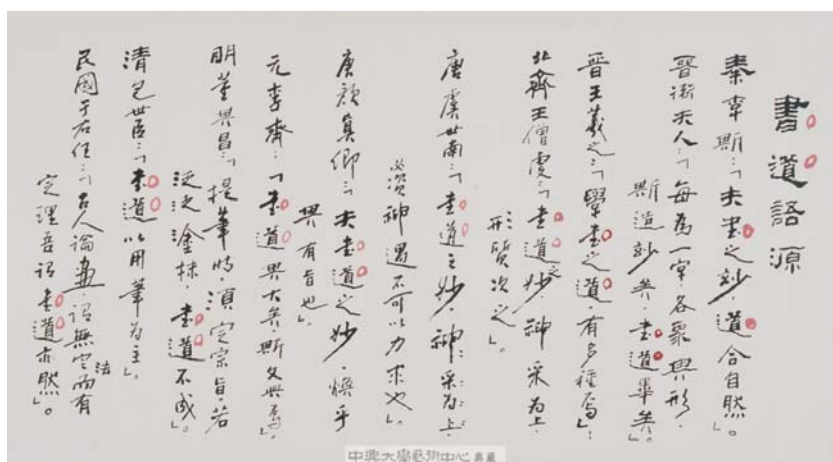 書道語源
秦李斯:「夫書之妙,道合自然」。
晉衛夫人:「每為一字,各象其形,
斯造妙矣,書道畢矣」。
晉王羲之:「學書之道,有多種焉」:
北齊王僧虔:「書道之妙,神采為上,
形質次之」。
唐虞世南:「書道之妙,神采為上,
必資神遇不可以力求也」。
唐顏真卿:「夫書道之妙,煥乎
其有旨也」。
元李齊:「書道與大矣,斯文與焉」
明董其昌:「提筆時,須定宗旨,若
泛泛塗抹,書道不成」。
清包世臣:「書道以用筆為主」。
民國于右任:「古人論畫,謂無定法而有
定理吾謂書道亦然」。
中興大學藝術中心典藏